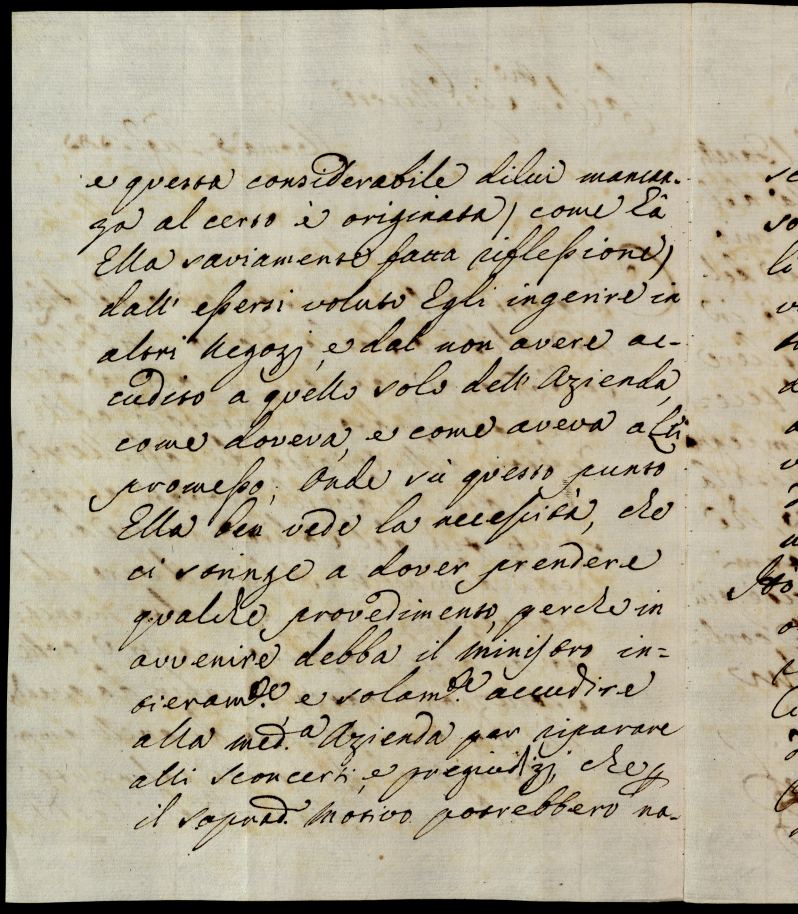 e questa considerabile dilui mancan-
za al certo è originata, come hà
Ella saviamente fatta riflessione,
dall' essersi voluto Egli ingerire in
altri Negozj, e dal non avere ac-
cudito a quello solo dell' Azienda,
come doveva, e come aveva a
promesso; Onde sù questo punto
Ella ben vede la necessità, che
ci stringe a dover prendere
qualche provedimento, perche in
avvenire debba il ministro in-
tieram.te, e solam.te accudire
alla med.a Azienda per riparare
alli sconcerti, e pregiudizj, che
il soprad. motivo potrebbero na-